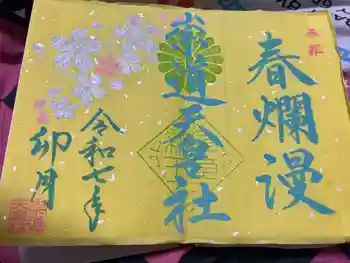 奉拝
春爛漫
天皇社
令和七年
卯月